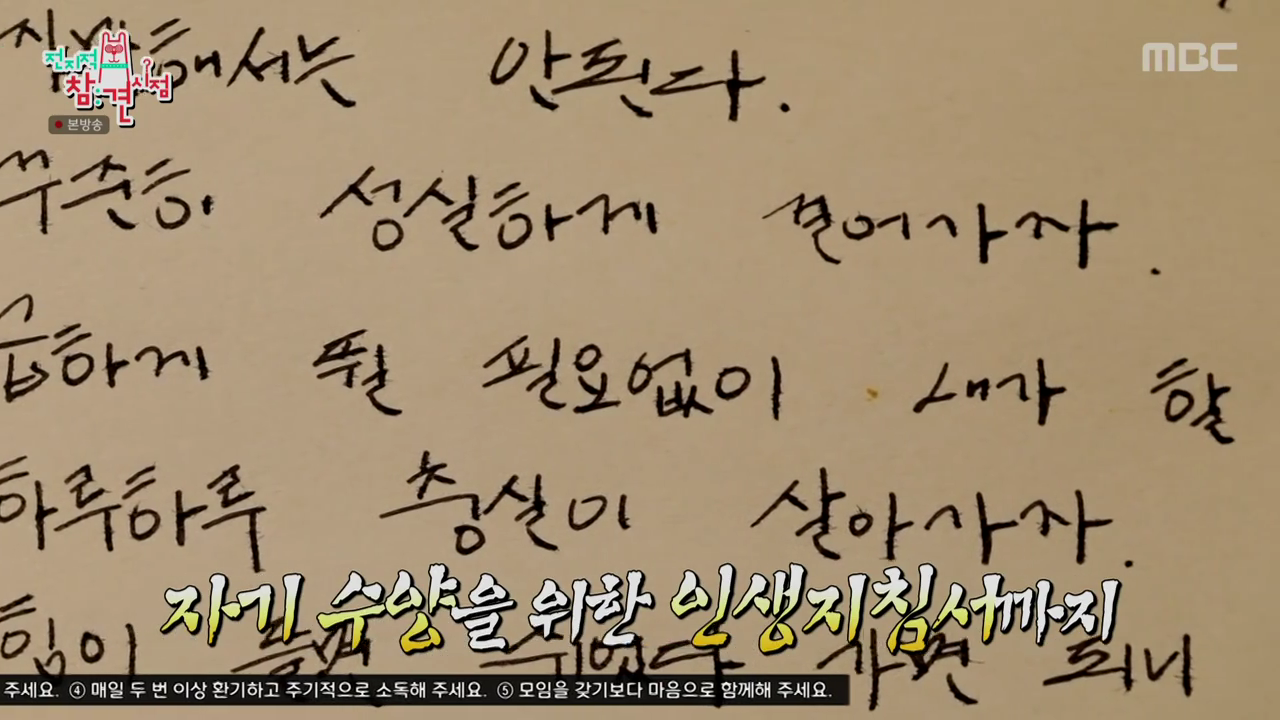 전지적
참견시점
본방송
MBC
해서는 안된다.
꾸준히 성실하게 걸어가자.
급하게 뛸 필요없이 내가 할
하루하루 충실이 살아가자.
힘이 들면 쉬었다 가면 되니
자기 수양을 위한 인생지침서까지
주세요. ④ 매일 두 번 이상 환기하고 주기적으로 소독해 주세요. ⑤ 모임을 갖기보다 마음으로 함께해 주세요.